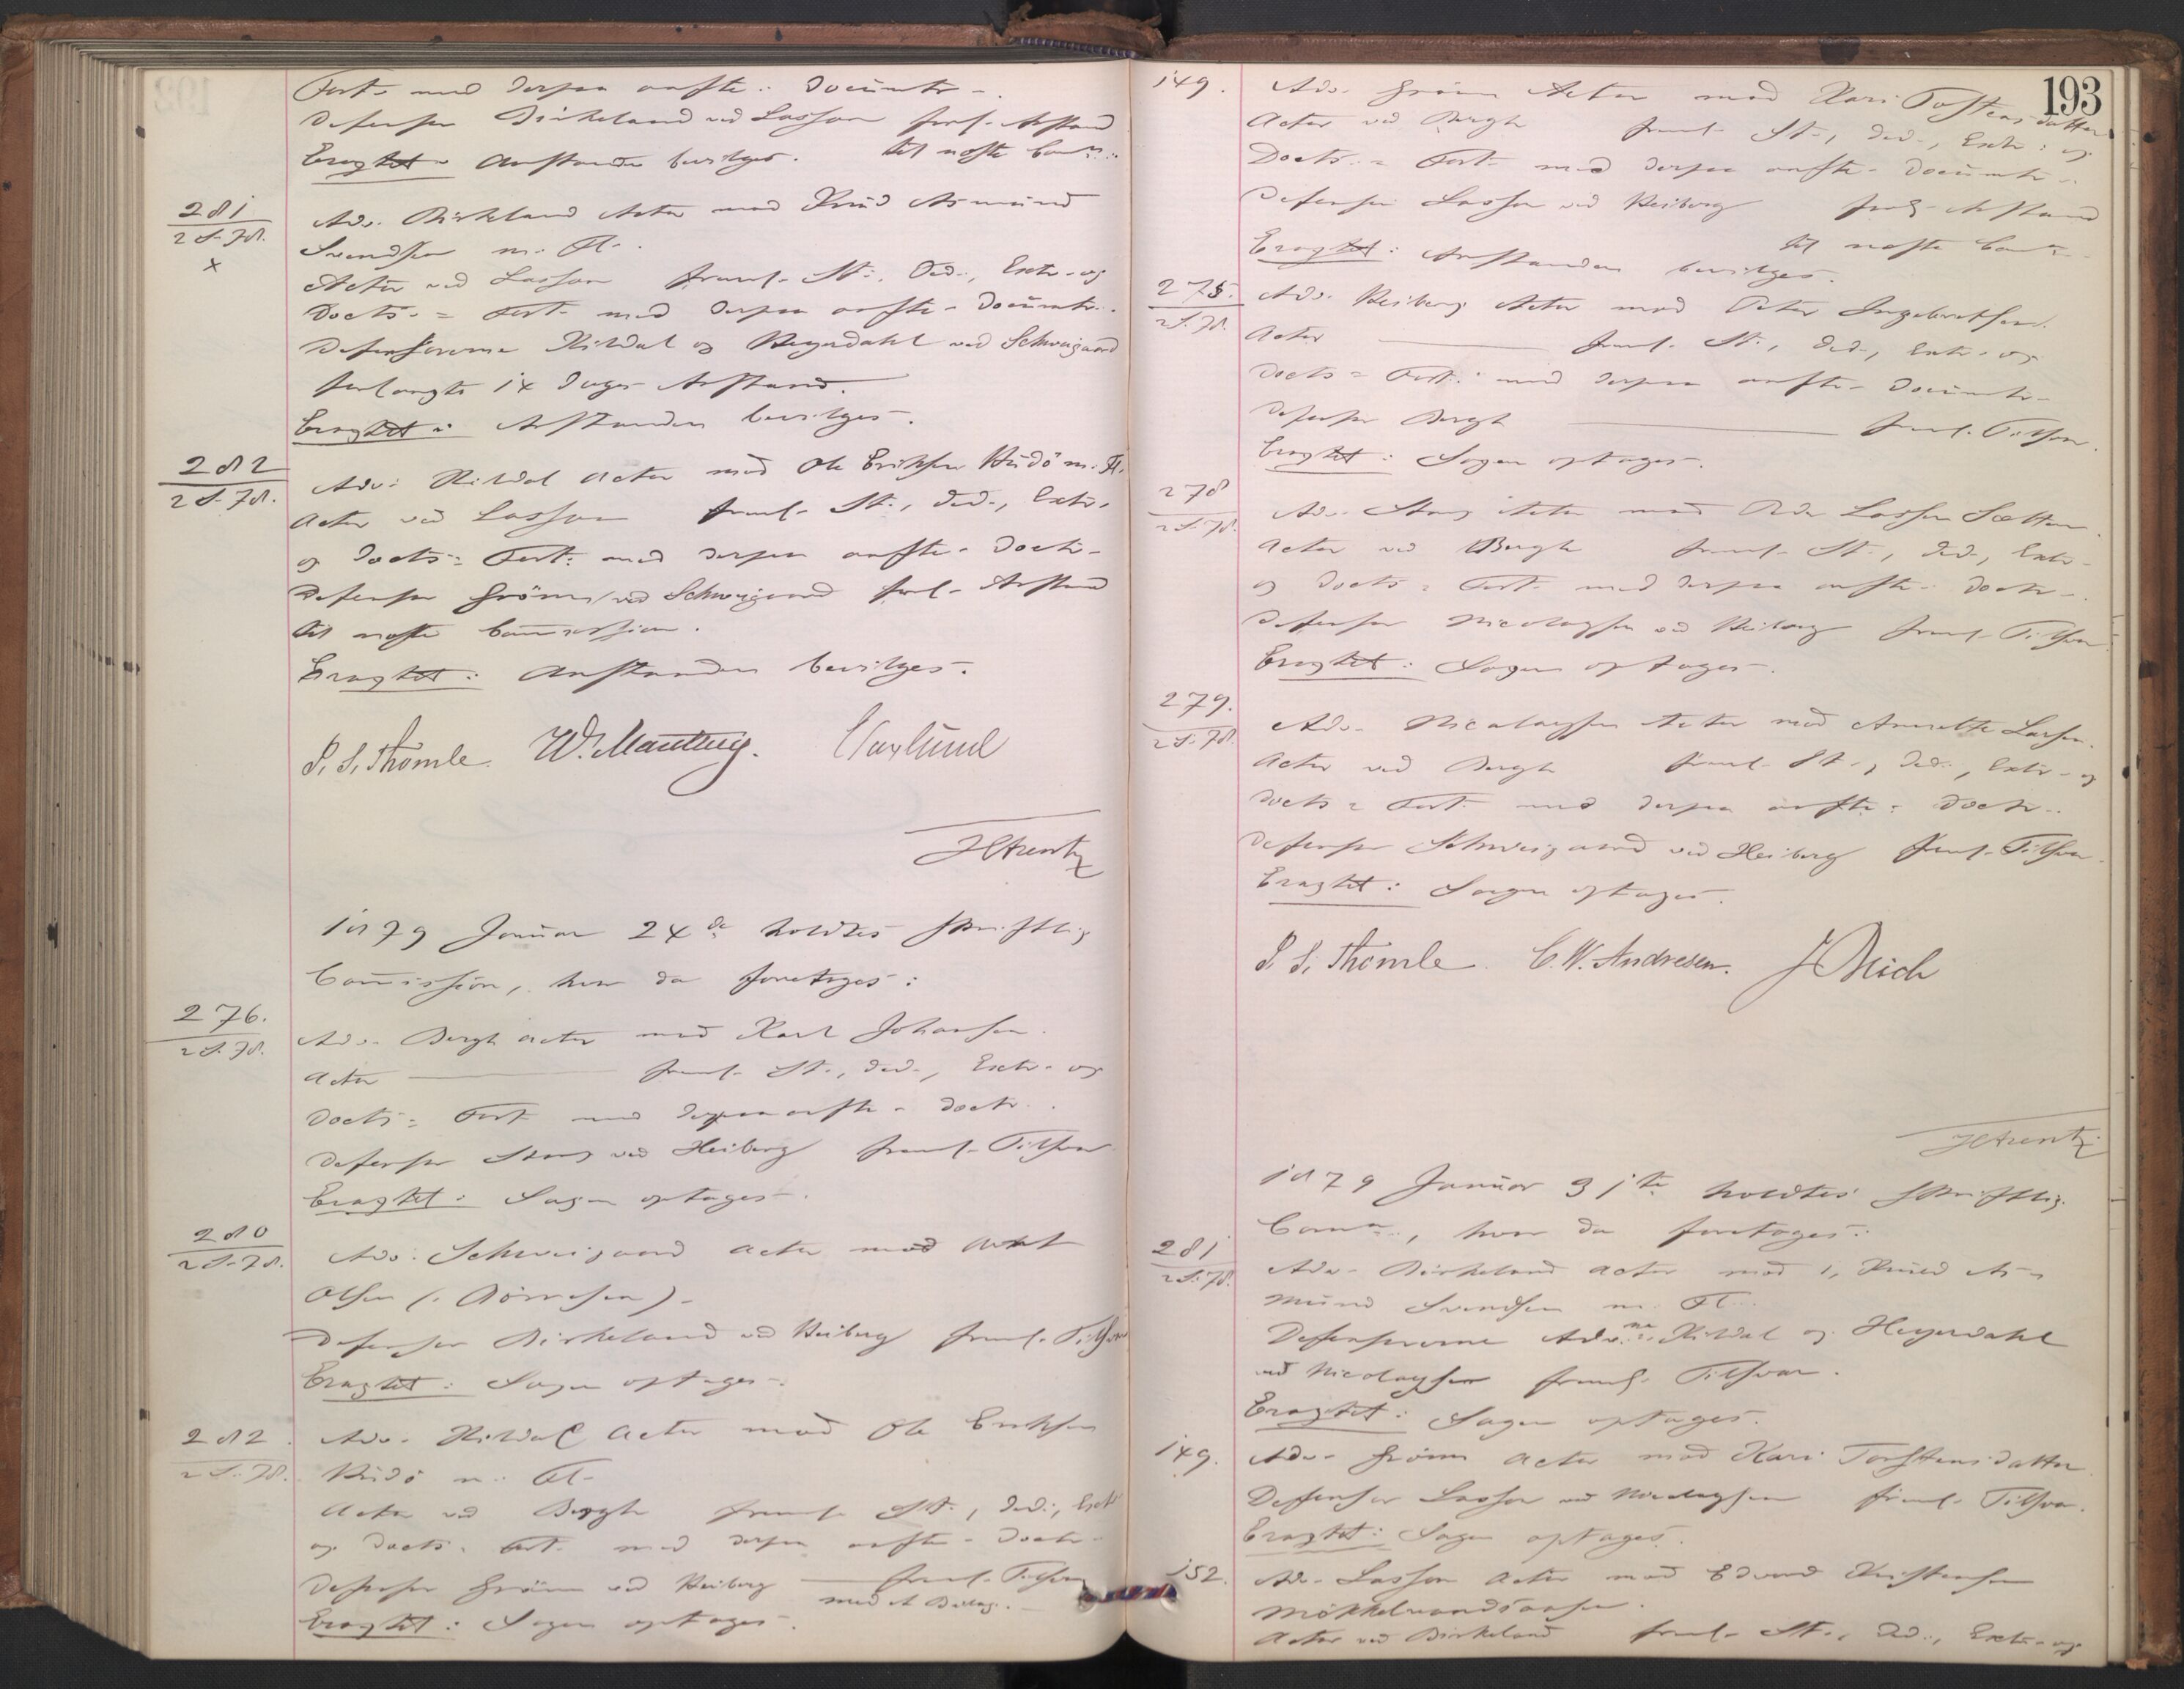 Fort. med derpaa anførte Documtr.
Defensor Birkeland ved Lasson forl. Anstand
Eragtet: Anstanden bevilges. til næste Comn.
281
2 S. 78.
x
Adv. Birkeland Actor mod Knud Asmund
Svendsen m. Fl.
Actor ved Lasson freml. St., Ded., Extr. og
Docts. = Fort. med derpaa anførte Documtr.
Defensorerne Kildal og Heyerdahl ved Schweigaard
forlangte 14 Dages Anstand.
Eragtet: Anstanden bevilges.
282
2 S. 78.
Adv. Kildal Actor mod Ole Eriksen Hudö m. Fl.
Actor ved Lasson freml. St., Ded., Extr.
og Docts. = Fort. med derpaa anførte Doctr.
Defensor Grönn ved Schweigaard forl. Anstand
til næste Commission.
Eragtet: Anstanden bevilges.
P. S. Thomle. W. Manthey.
1879 Januar 24de holdtes skriftlig
Commission, hvor da foretoges:
276.
2 S. 78.
Adv. Bergh Actor mod Karl Johansen.
Actor — freml. St., Ded., Extr. og
Docts. = Fort. med derpaa anførte Doctr.
Defensor Stang ved Heiberg freml. Tilsvar
Eragtet: Sagen optages.
280
2 S. 78.
Adv. Schweigaard Actor mod
Olsen (: Börresen).
Defensor Birkeland ved Heiberg freml. Tilsvar
Eragtet: Sagen optages.
282.
2 S. 78.
Adv. Kildal Actor mod Ole Eriksen
Hudö m. Fl.
Actor ved Bergh freml. St., Ded., Extr.
og Docts. = Fort. med derpaa anførte Doctr.
Defensor Grönn ved Heiberg — freml. Tilsvar
med 1 Bilag.
Eragtet: Sagen optages.
193
149.
Adv. Grönn Actor mod Kari Torstensdatter
Actor ved Bergh freml. St., Ded., Extr. og
Docts. = Fort. med derpaa anførte Documtr.
Defensor Lasson ved Heiberg forl. Anstand
til næste Comn.
Eragtet: Anstanden bevilges.
275.
2 S. 78.
Adv. Heiberg Actor mod Peter Ingebretsen.
Actor — freml. St., Ded., Extr. og
Docts = Fort. med derpaa anførte Documtr.
Defensor Bergh — freml. Tilsvar.
Eragtet: Sagen optages.
278
2 S. 78.
Adv. Stang Actor mod Peder Larsen Sætter.
Actor ved Bergh freml. St., Ded., Extr.
og Docts = Fort. med derpaa anførte Doctr.
Defensor Nicolaysen ved Heiberg freml. Tilsvar
Eragtet: Sagen optages.
279.
2 S. 78.
Adv. Nicolaysen Actor mod Annette Larsen.
Actor ved Bergh freml. St., Ded., Extr. og
Docts = Fort. med derpaa anførte Doctr.
Defensor Schweigaard ved Heiberg freml. Tilsvar.
Eragtet: Sagen optages.
P. S. Thomle. C. W. Andresen.
1879 Januar 31te holdtes skriftlig
Comn., hvor da foretoges:
281
2 S. 78.
Adv. Birkeland Actor mod 1, Knud As-
mund Svendsen m. Fl.
Defensorerne Advne. Kildal og Heyerdahl
ved Nicolaysen freml. Tilsvar.
Eragtet: Sagen optages.
149.
Adv. Grönn Actor mod Kari Torstensdatter.
Defensor Lasson ved Nicolaysen freml. Tilsvar.
Eragtet: Sagen optages.
152.
Adv. Lasson Actor mod Edvard Kristensen
Actor ved Birkeland freml. St., Ded., Extr. og